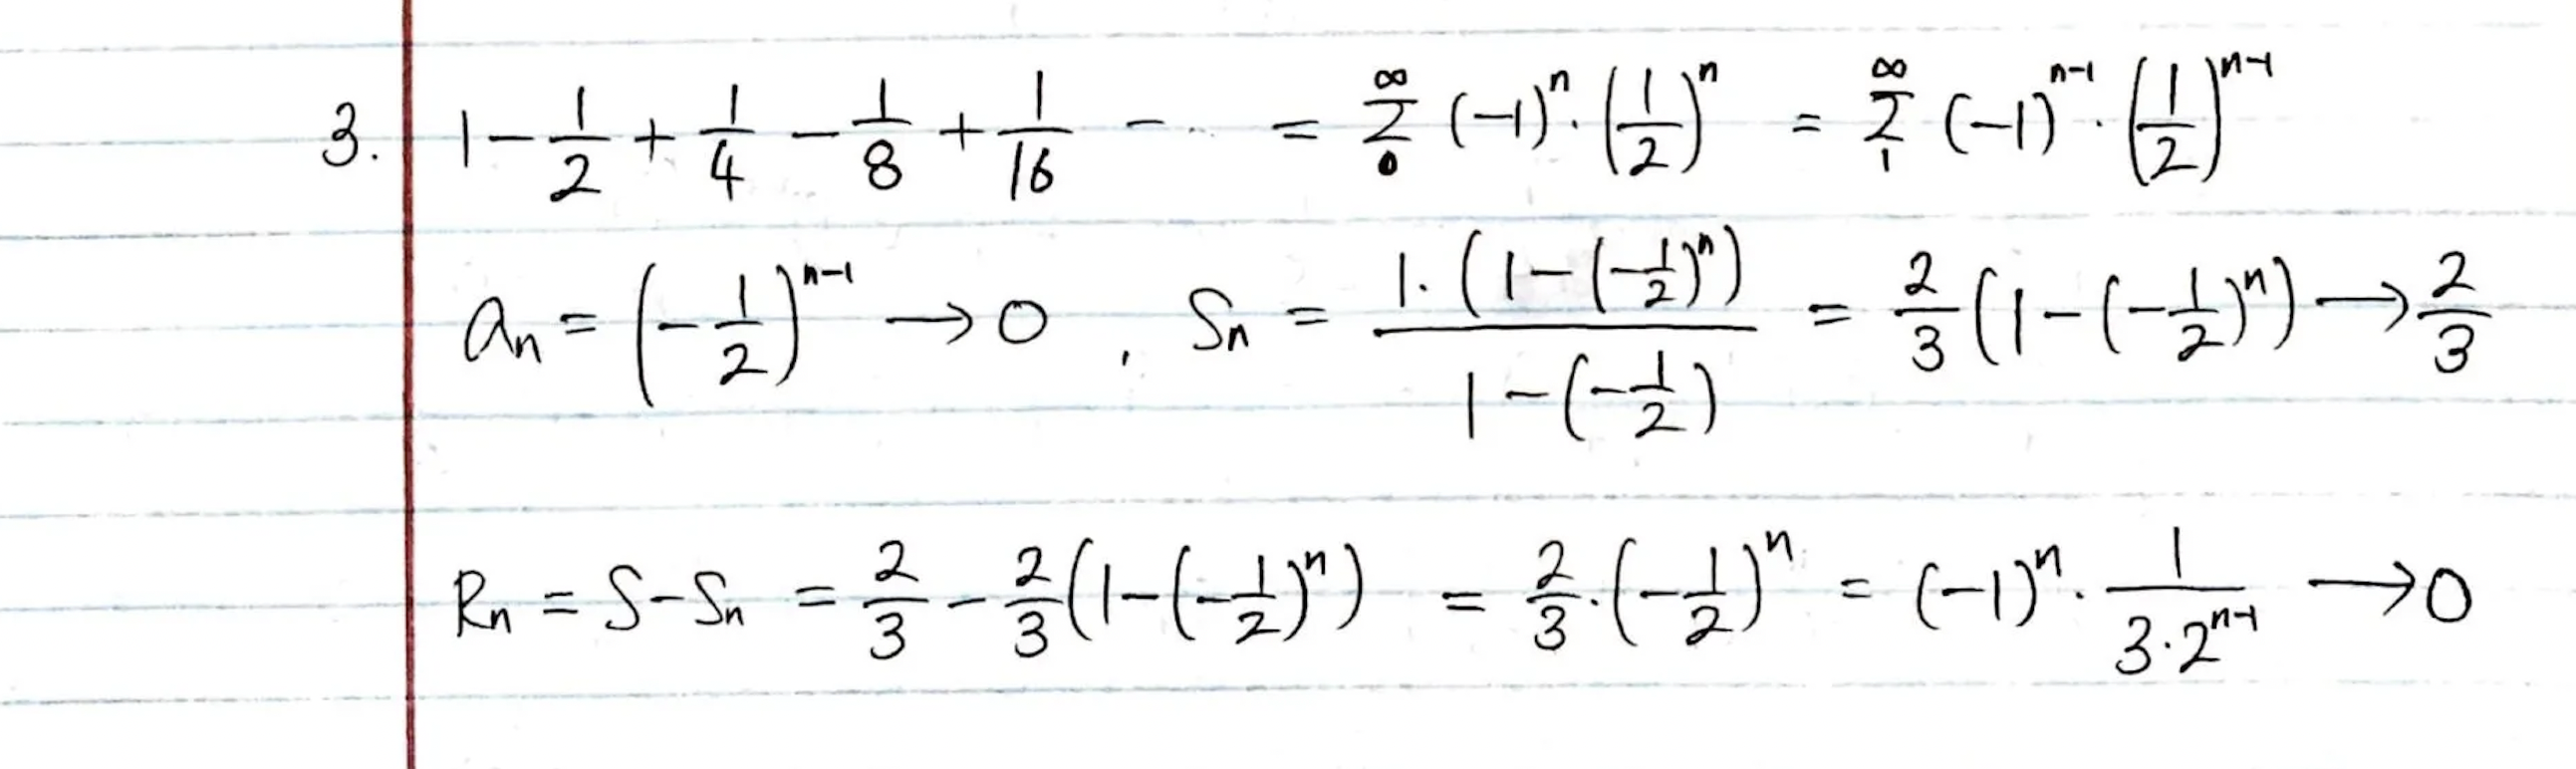 3. 1 - 1/2 + 1/4 - 1/8 + 1/16 - ... = Σ_0^∞ (-1)^n · (1/2)^n = Σ_1^∞ (-1)^{n-1} · (1/2)^{n-1}
a_n = (-1/2)^{n-1} → 0 , S_n = 1·(1-(-1/2)^n) / (1-(-1/2)) = 2/3 (1-(-1/2)^n) → 2/3
R_n = S - S_n = 2/3 - 2/3 (1-(-1/2)^n) = 2/3 · (-1/2)^n = (-1)^n · 1/(3·2^{n-1}) → 0